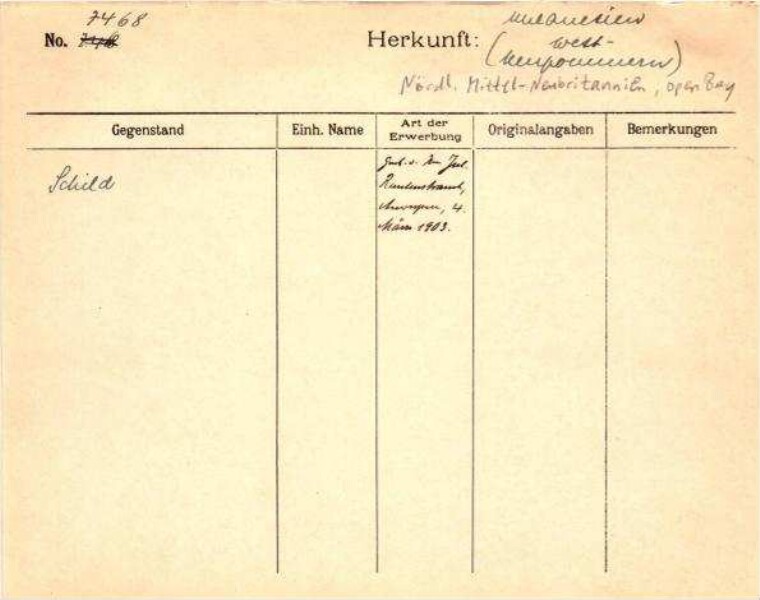 7468
No. 746
Herkunft: Melanesien
(West-
Neupommern)
Nördl. Mittel-Neubritannien, Open Bay
Gegenstand
Einh. Name
Art der
Erwerbung
Originalangaben
Bemerkungen
Schild
Jul.
4.
März 1903.